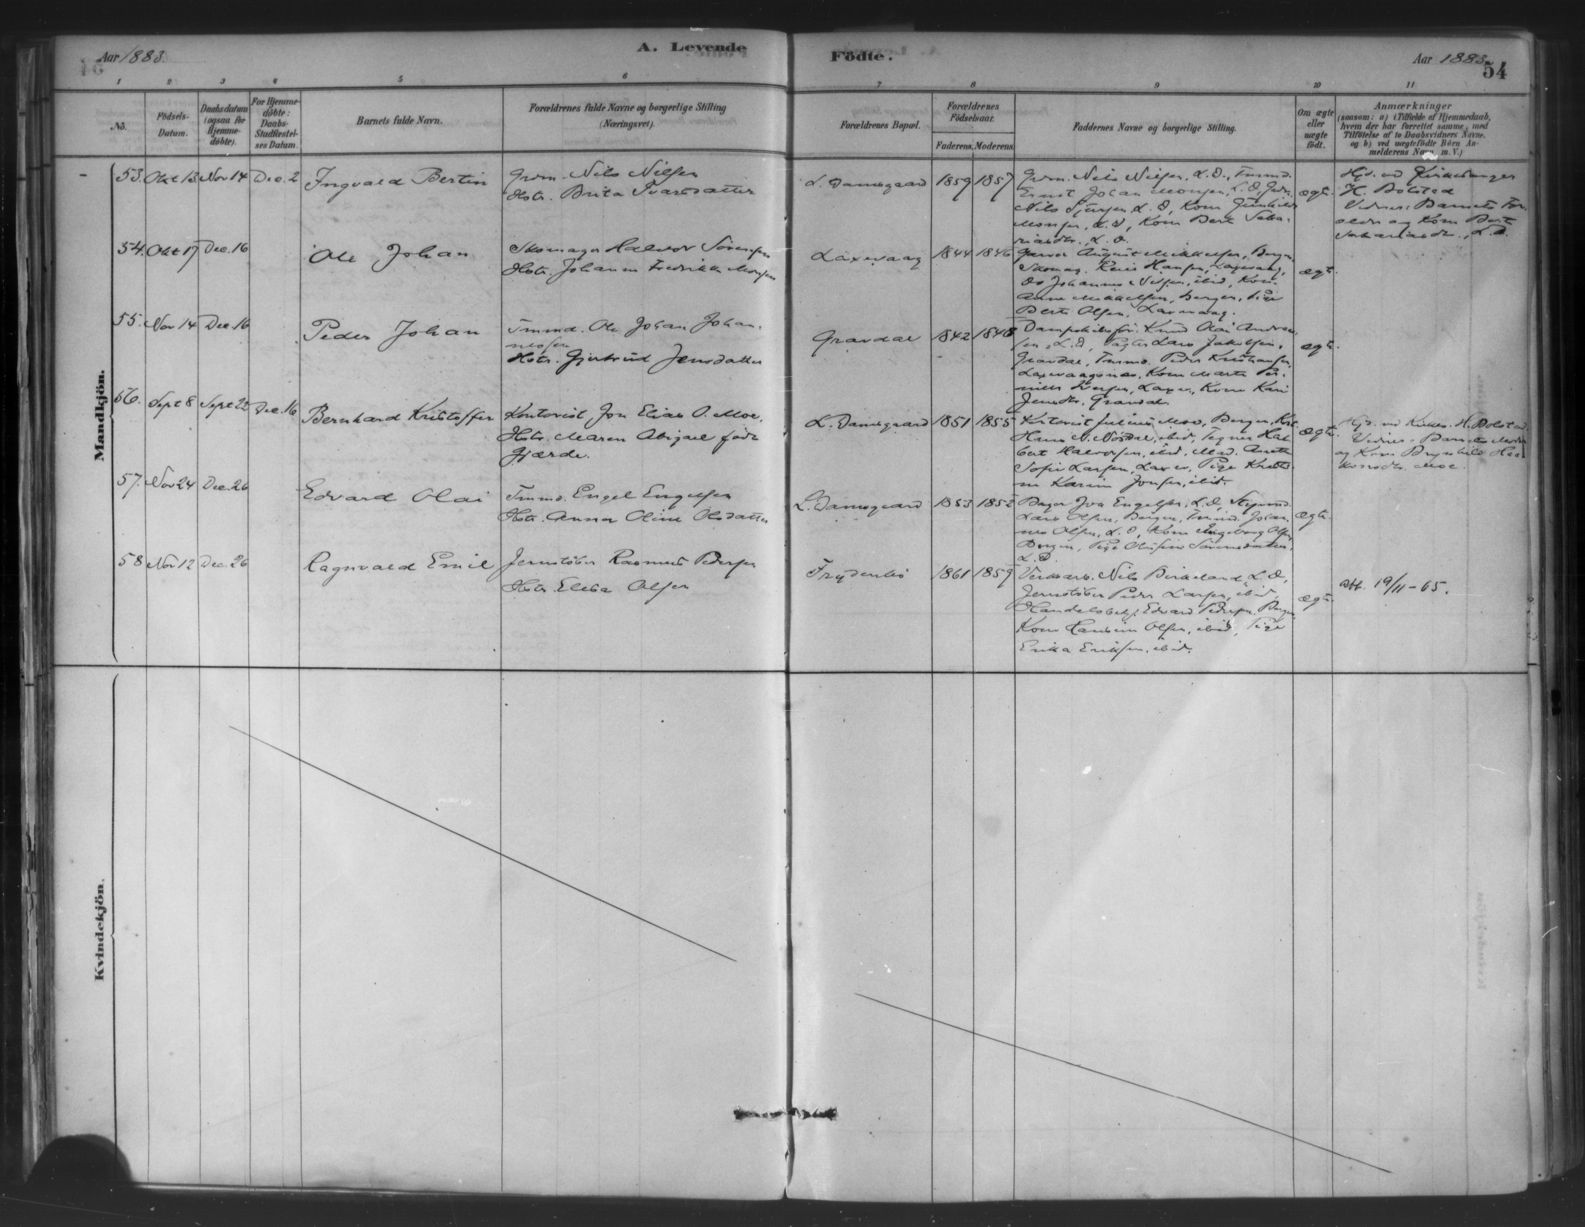 Aar 1883.
A. Levende
Fødte.
Aar 1883.
54
1 2 3 4 5 6 7 8 9 10 11
No.
Fødsels-Datum.
Daabsdatum (ogsaa for Hjemme-døbte).
For Hjemme-døbte: Daabs-Stadfæstel-ses Datum.
Barnets fulde Navn.
Forældrenes fulde Navne og borgerlige Stilling (Næringsvei).
Forældrenes Bopæl.
Forældrenes Fødselsaar.
Faderens. Moderens.
Faddernes Navne og borgerlige Stilling.
Om ægte eller uægte født.
Anmærkninger
(saasom: a) i Tilfælde af Hjemmedaab,
hvem der har forrettet samme, med
Tilføielse af to Daabsvidners Navne,
og b) ved uægtefødte Børn An-
melderens Navn, m. V.)
Mandkjøn.
53. Okt 13 Nov 14 Dec. 2
Ingvald Bertin
Grdm. Nils Nilsen
Hstr. Brita Ivarsdatter
L. Damsgaard
1859 1857
Grdm. Nils Nilsen, L. D., Tmmd.
Ernst Johan Monsen, L. D.,
Nils L. D, Kone
Monsen, L. D, Kone Berte Saka-
riasdtr., L. D.
ægte.
Hjd. ved
H. Bolstad
Vidner: Barnets For-
ældre og Kone Berte
Sakariasdtr., L. D.
54. Okt 17 Dec. 16
Ole Johan
Skomager Halvor Sørensen
Hstr. Johanne Fredrikke Monsen
Laxevaag
1844 1846
August Mikkelsen, Bergen,
Skomag. Hansen, Laxevaag,
Johannes Nilsen, ibid, Kone
Anne Mikkelsen, Bergen, Pige
Berte Olsen, Laxevaag.
ægt.
55. Nov 14 Dec 16
Peder Johan
Tmmd. Ole Johan Johan-
nesen
Hstr. Gjertrud Jensdatter
Gravdal
1842 1848
Knud Olai Andrea-
sen, L. D, Lars Jakobsen,
Gravdal, Tmmd. Peder Kristiansen,
Laxevaagsnæs, Kone Marte Per-
nille Laxev., Kone Kari
Jensdtr. Gravdal.
ægt.
56. Sept 8 Sept 22 Dec. 16
Bernhard Kristoffer
Kontorist Jon Elias O. Moe.
Hstr. Maren Abigael født
Gjærde.
L. Damsgaard
1851 1855
Kontorist Julius Moe, Bergen,
Hans N. ibid,
Halvorsen, ibid, Mad.
Sofie Larsen, Laxev, Pige
Karine Jonsen, ibid.
ægte.
Hjd. ved H. Bolstad
Vidner: Barnets Moder
og Kone Brynhild
Moe.
57. Nov 24 Dec. 26
Edvard Olai
Tmmd. Engel Engelsen
Hstr. Anna Oline Olsdatter
L. Damsgaard
1853 1852
Bager Jon Engelsen, L. D,
Lars Olsen, Bergen, Tmmd. Johan-
nes Olsen, L. D, Kone Ingeborg Olsen
Bergen, Pige
L. D.
ægte.
58 Nov 12 Dec. 26
Ragnvald Emil
Jernstøber Rasmus Pedersen
Hstr. Elisa Olsen
Frydenbø
1861 1859
Verksarb. Nils Birkeland, L. D,
Jernstøber Peder Larsen, ibid,
Handelsbetj. Edvard Pedersen, Bergen
Kone Hansine Olsen, ibid, Pige
Erika Eriksen, ibid.
ægte.
att. 19/11-65.
Kvindekjøn.